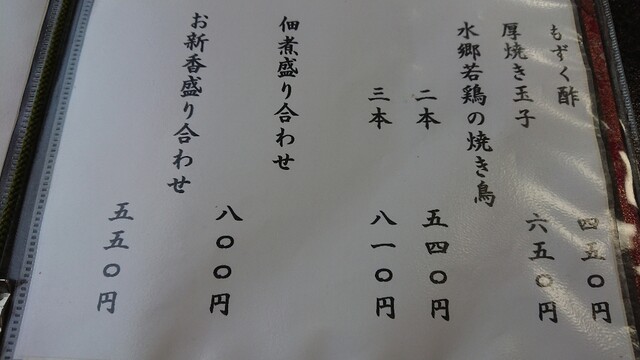 もずく酢 四五〇円
厚焼き玉子 六五〇円
水郷若鶏の焼き鳥
二本 五四〇円
三本 八一〇円
佃煮盛り合わせ 八〇〇円
お新香盛り合わせ 五五〇円